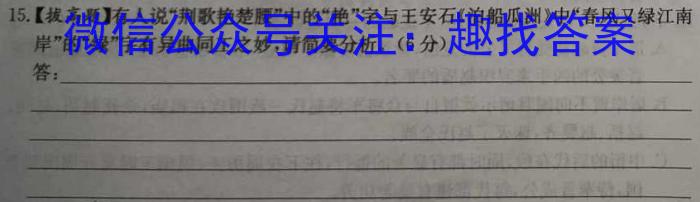 15.【拔高题】有人说“荆歌艳楚腰”中的“艳”字与王安石《泊船瓜洲》中“春风又绿江南
岸”的“绿”字有异曲同工之妙,请简要分析。(6分)
微信公众号关注:趣找答案
答: